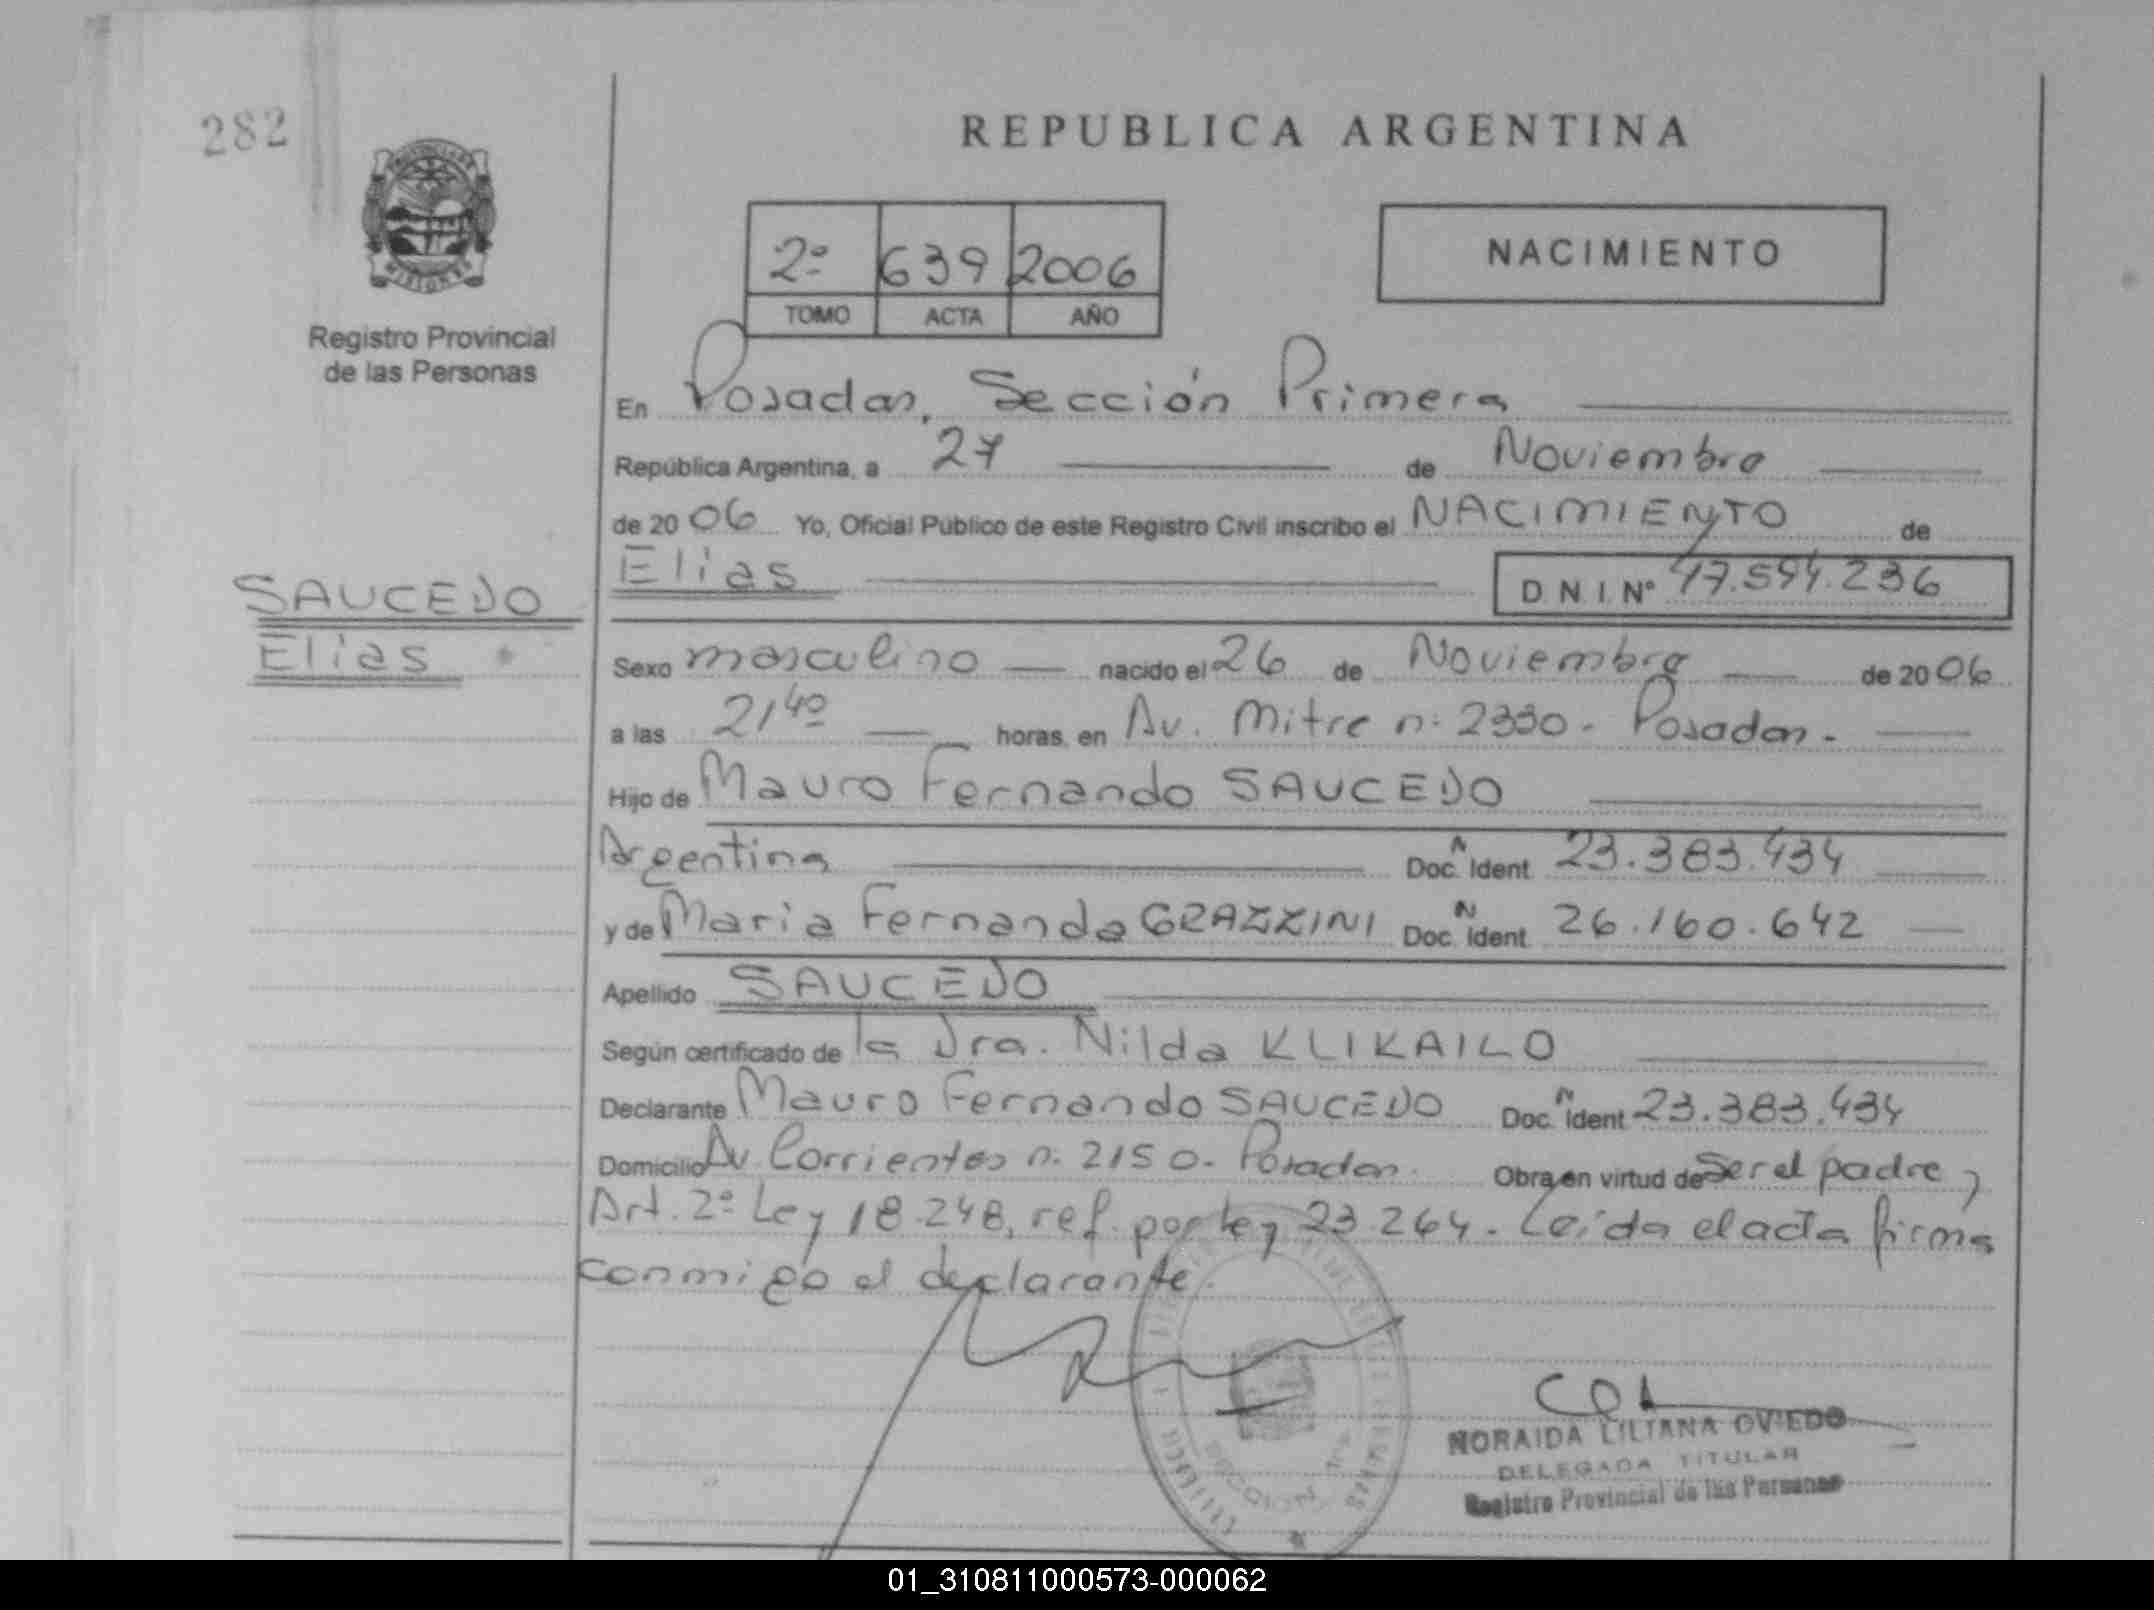 282
REPUBLICA ARGENTINA
2º 639 2006
TOMO ACTA AÑO
NACIMIENTO
MISIONES
Registro Provincial
de las Personas
En Posadas, Sección Primera
República Argentina, a 27 de Noviembre
de 20 06 Yo, Oficial Público de este Registro Civil inscribo el NACIMIENTO de
Elias D.N.I. Nº 47.594.236
SAUCEDO
Elias
Sexo masculino nacido el 26 de Noviembre de 20 06
a las 21 40 horas, en Av. Mitre n: 2330 - Posadas -
Hijo de Mauro Fernando SAUCEDO
Argentina Doc. N Ident 23.383.434
y de Maria Fernanda GRAZZINI Doc. N Ident 26.160.642
Apellido SAUCEDO
Según certificado de la Dra. Nilda KLIKAILO
Declarante Mauro Fernando SAUCEDO Doc. N Ident 23.383.434
Domicilio Av. Corrientes n: 2150 - Posadas. Obra en virtud de Ser el padre y
Art. 2º Ley 18.248, ref. por ley 23.264. Leída el acta firma
conmigo el declarante.
NORAIDA LILIANA OVIEDO
DELEGADA TITULAR
Registro Provincial de las Personas
01_310811000573-000062